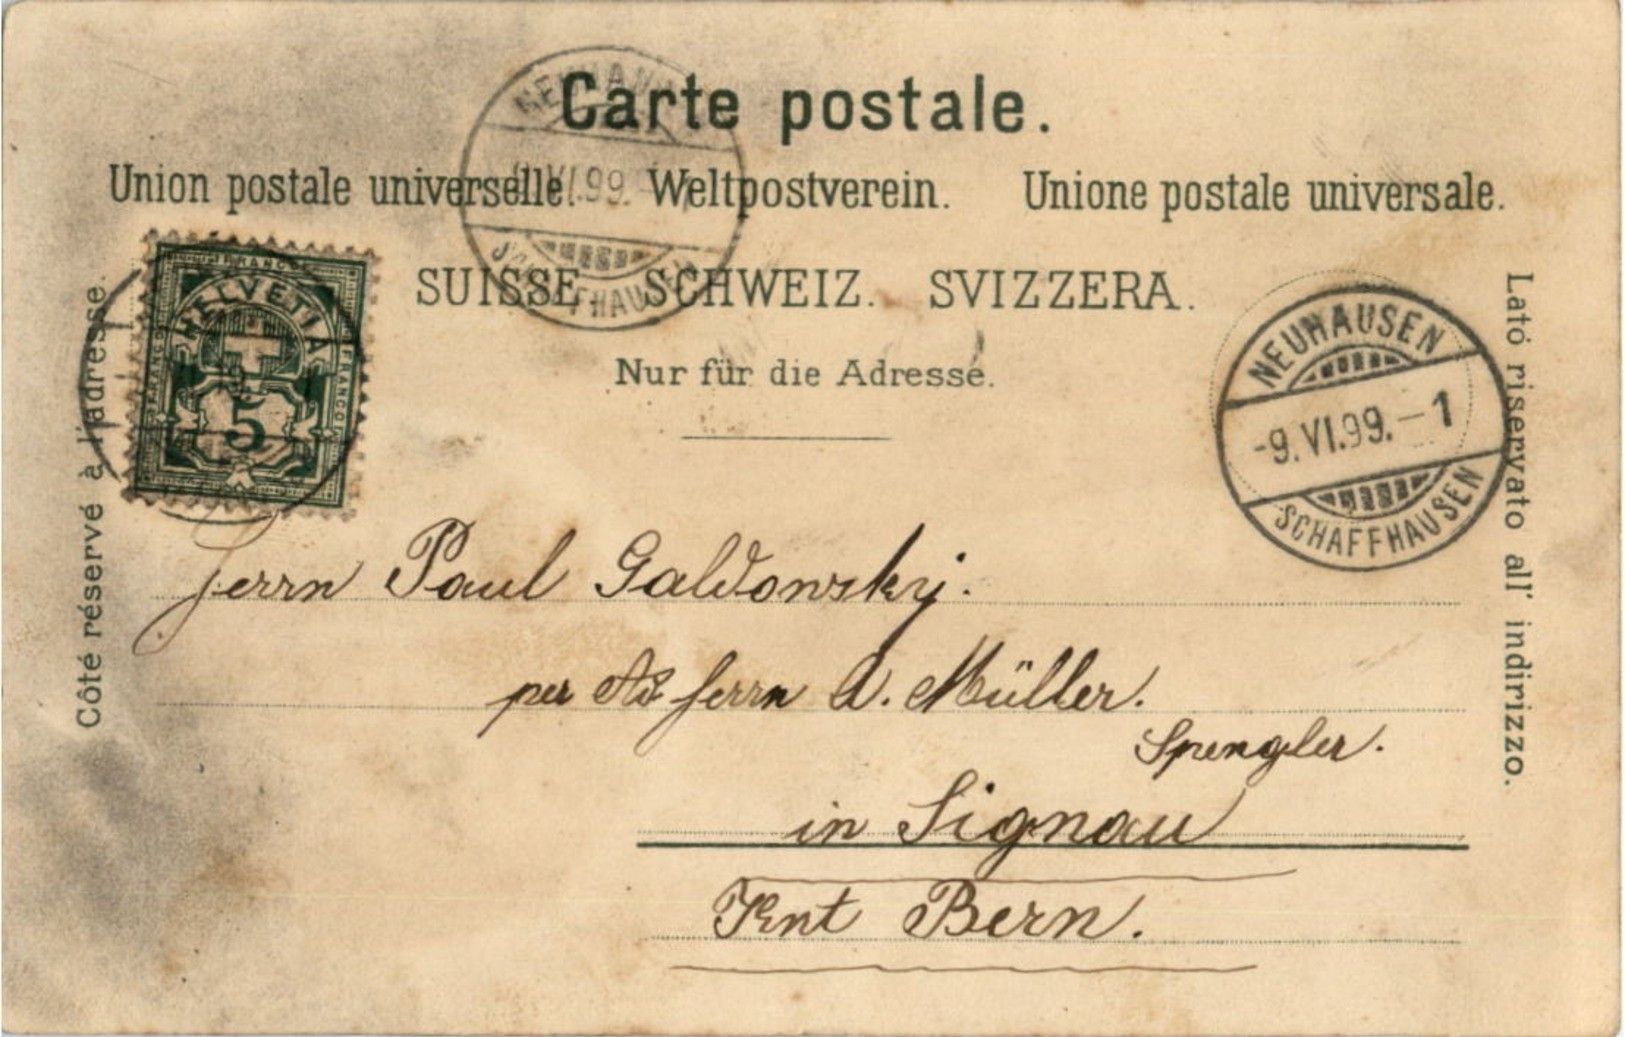 Carte postale.
Union postale universelle. Weltpostverein. Unione postale universale.
SUISSE. SCHWEIZ. SVIZZERA.
Nur für die Adresse.
Côté réservé à l'adresse.
Lato riservato all' indirizzo.
FRANCO
HELVETIA
FRANCO
FRANCO
5
VI.99.
SCHAFFHAUSEN
NEUHAUSEN
-9.VI.99.-1
SCHAFFHAUSEN
Herrn Paul Galdowsky.
per Ad Herrn A. Müller.
Spengler.
in Signau
Knt Bern.